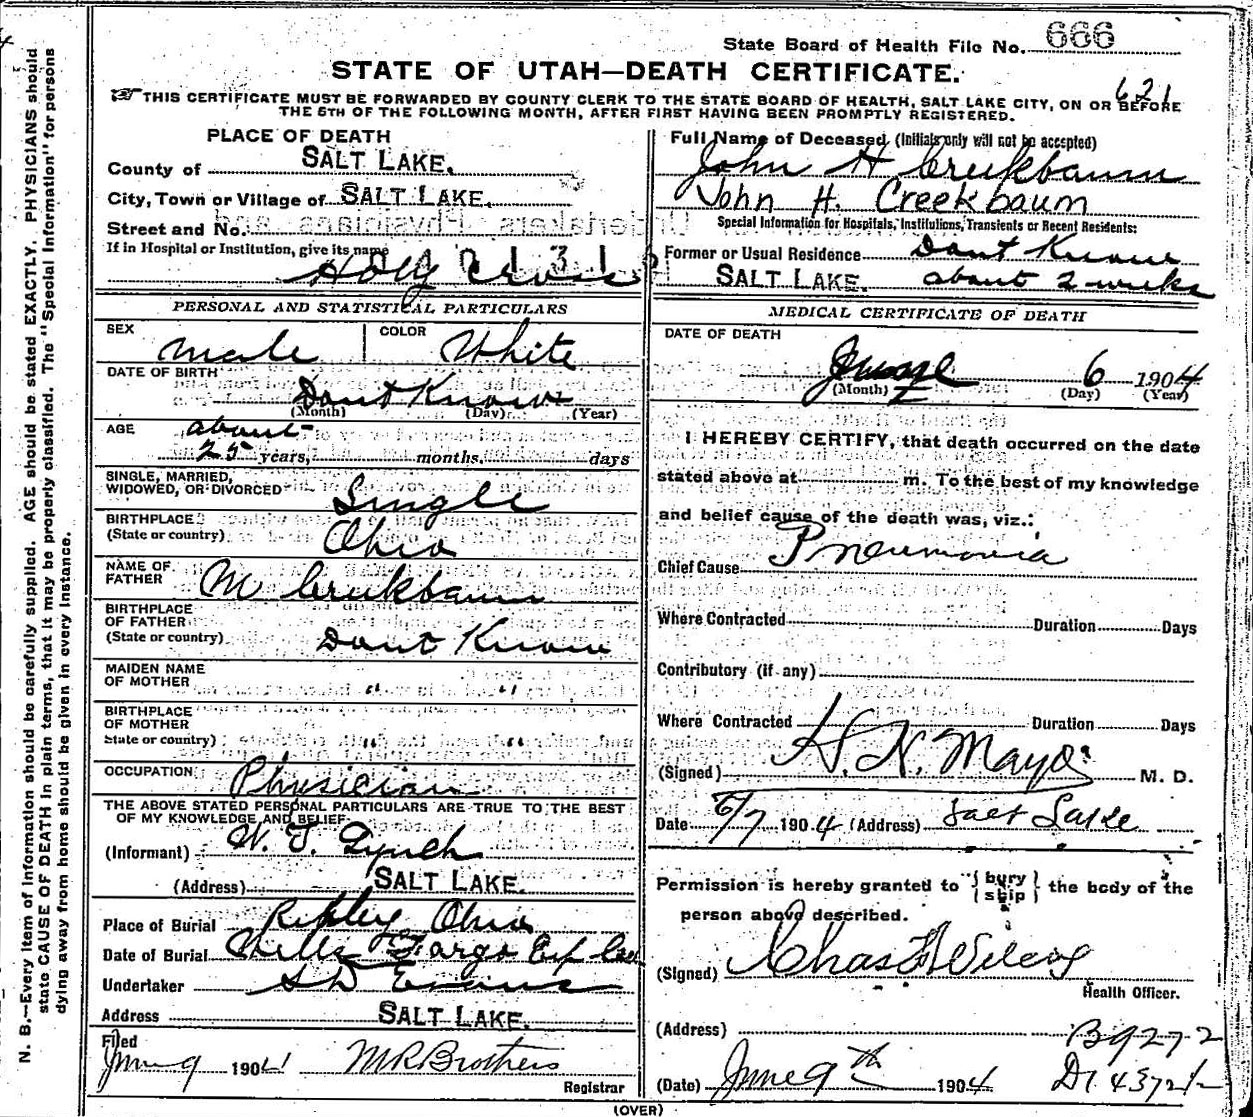 State Board of Health File No. 666
STATE OF UTAH—DEATH CERTIFICATE.
621
☞ THIS CERTIFICATE MUST BE FORWARDED BY COUNTY CLERK TO THE STATE BOARD OF HEALTH, SALT LAKE CITY, ON OR BEFORE
THE 5TH OF THE FOLLOWING MONTH, AFTER FIRST HAVING BEEN PROMPTLY REGISTERED.
N. B.—Every item of information should be carefully supplied. AGE should be stated EXACTLY. PHYSICIANS should
state CAUSE OF DEATH in plain terms, that it may be properly classified. The "Special Information" for persons
dying away from home should be given in every instance.
PLACE OF DEATH
County of SALT LAKE.
City, Town or Village of SALT LAKE.
Street and No.
If in Hospital or Institution, give its name
Holy Cross
PERSONAL AND STATISTICAL PARTICULARS
SEX Male COLOR White
DATE OF BIRTH
Dont Know
(Month) (Day) (Year)
AGE about
25 years, months, days
SINGLE, MARRIED,
WIDOWED, OR DIVORCED Single
BIRTHPLACE
(State or country) Ohio
NAME OF
FATHER M Creekbaum
BIRTHPLACE
OF FATHER
(State or country) Dont Know
MAIDEN NAME
OF MOTHER " "
BIRTHPLACE
OF MOTHER
State or country) " "
OCCUPATION Physician
THE ABOVE STATED PERSONAL PARTICULARS ARE TRUE TO THE BEST
OF MY KNOWLEDGE AND BELIEF
(Informant) W. J. Lynch
(Address) SALT LAKE.
Place of Burial Ripley Ohio
Date of Burial Wells Fargo Exp
Undertaker S D Evans
Address SALT LAKE.
Filed
June 9 1904 M R Brothers
Registrar
Full Name of Deceased (Initials only will not be accepted)
John H Creekbaum
John H. Creekbaum
Special Information for Hospitals, Institutions, Transients or Recent Residents:
Former or Usual Residence Dont Know
SALT LAKE. about 2 weeks
MEDICAL CERTIFICATE OF DEATH
DATE OF DEATH
June 6 1904
(Month) (Day) (Year)
I HEREBY CERTIFY, that death occurred on the date
stated above at m. To the best of my knowledge
and belief cause of the death was, viz.:
Chief Cause Pneumonia
Where Contracted Duration Days
Contributory (if any)
Where Contracted Duration Days
(Signed) H. N. Mayo M. D.
Date 6/7 1904 (Address) Salt Lake
Permission is hereby granted to { bury
ship } the body of the
person above described.
(Signed) Chas F Wilcox
Health Officer.
(Address) B9272
(Date) June 9th 1904 D1
(OVER)